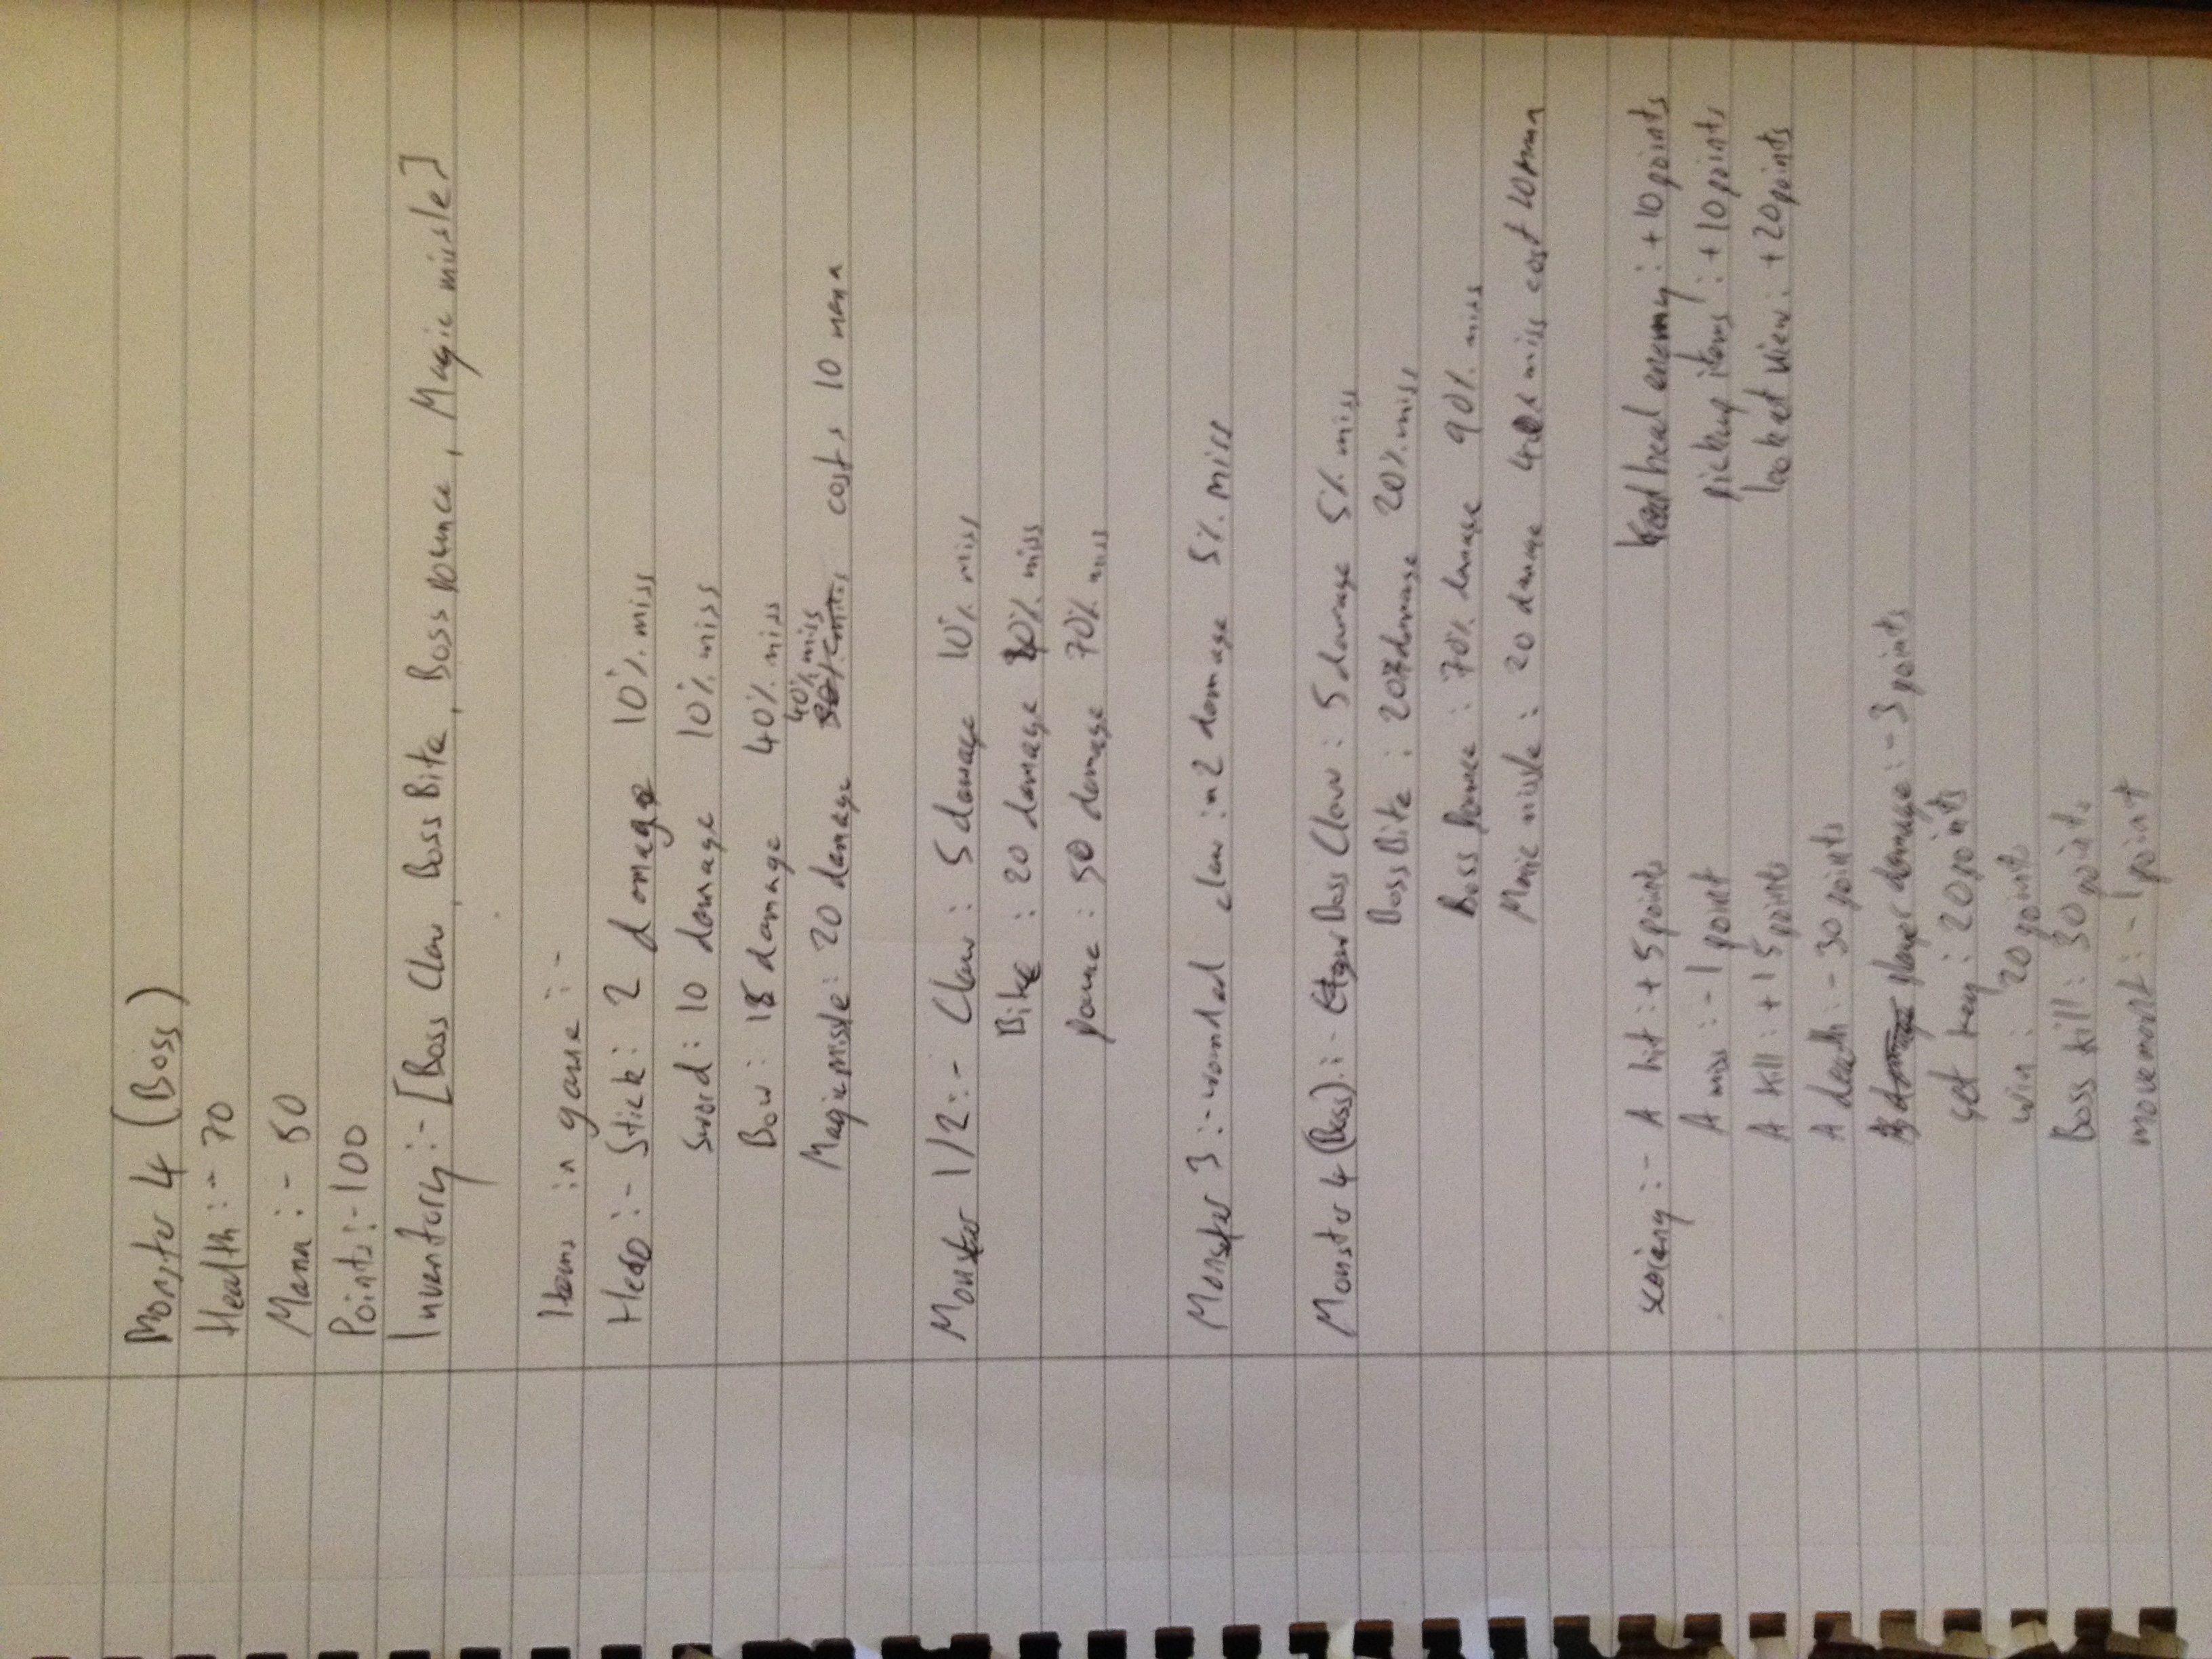 Monster 4 (Boss)
Health :- 70
Mana :- 50
Points :- 100
Inventory :- [Boss Claw, Boss Bite, Boss pounce, Magic missle]
Items in game :-
Hero :- Stick : 2 damage 10% miss
Sword : 10 damage 10% miss
Bow : 15 damage 40% miss
Magic missle : 20 damage 40% miss costs 10 mana
Monster 1/2 :- Claw : 5 damage 10% miss
Bite : 20 damage miss
Pounce : 50 damage 70% miss
Monster 3 :- wounded claw : 2 damage 5% miss
Monster 4 (Boss) :- Boss Claw : 5 damage 5% miss
Boss Bite : 20 damage 20% miss
Boss Pounce : 70% damage 90% miss
Magic missle : 20 damage 40% miss cost 10 mana
scoring :- A hit : +5 points heal enemy : +10 points
A miss : -1 point pickup items : +10 points
A kill : +15 points look at view : +20 points
A death : -30 points
player damage : -3 points
get key : 20 points
win : 20 points
Boss kill : 30 points
movement : -1 point